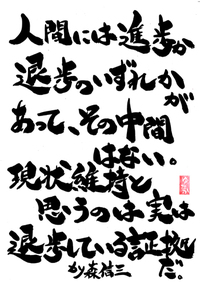 人間には進歩か
退歩のいずれかが
あって、その中間
はない。
現状維持と
思うのは実は
退歩している証拠だ。
森信三